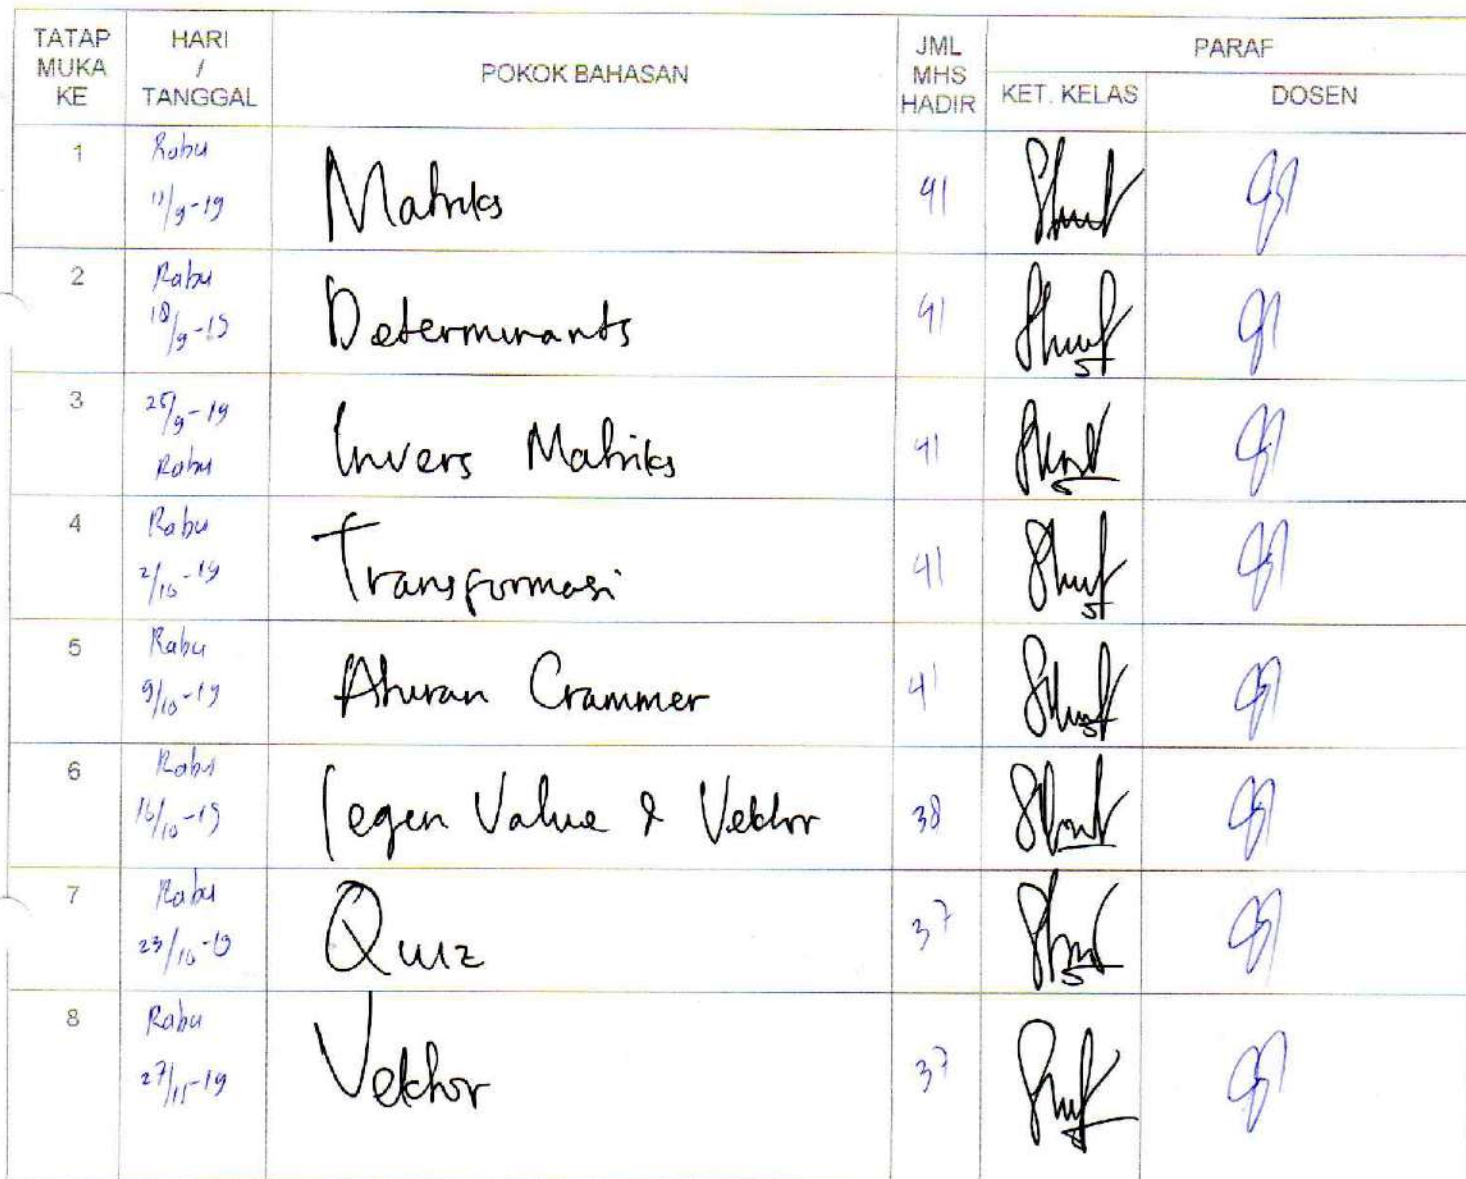 TATAP MUKA KE HARI / TANGGAL POKOK BAHASAN JML MHS HADIR PARAF
KET. KELAS DOSEN
1 Rabu 11/9-19 Matriks 41
2 Rabu 18/9-19 Determinants 41
3 25/9-19 Rabu Invers Matriks 41
4 Rabu 2/10-19 Transformasi 41
5 Rabu 9/10-19 Aturan Crammer 41
6 Rabu 16/10-19 Iegen Value & Vektor 38
7 Rabu 23/10-19 Quiz 37
8 Rabu 27/11-19 Vektor 37